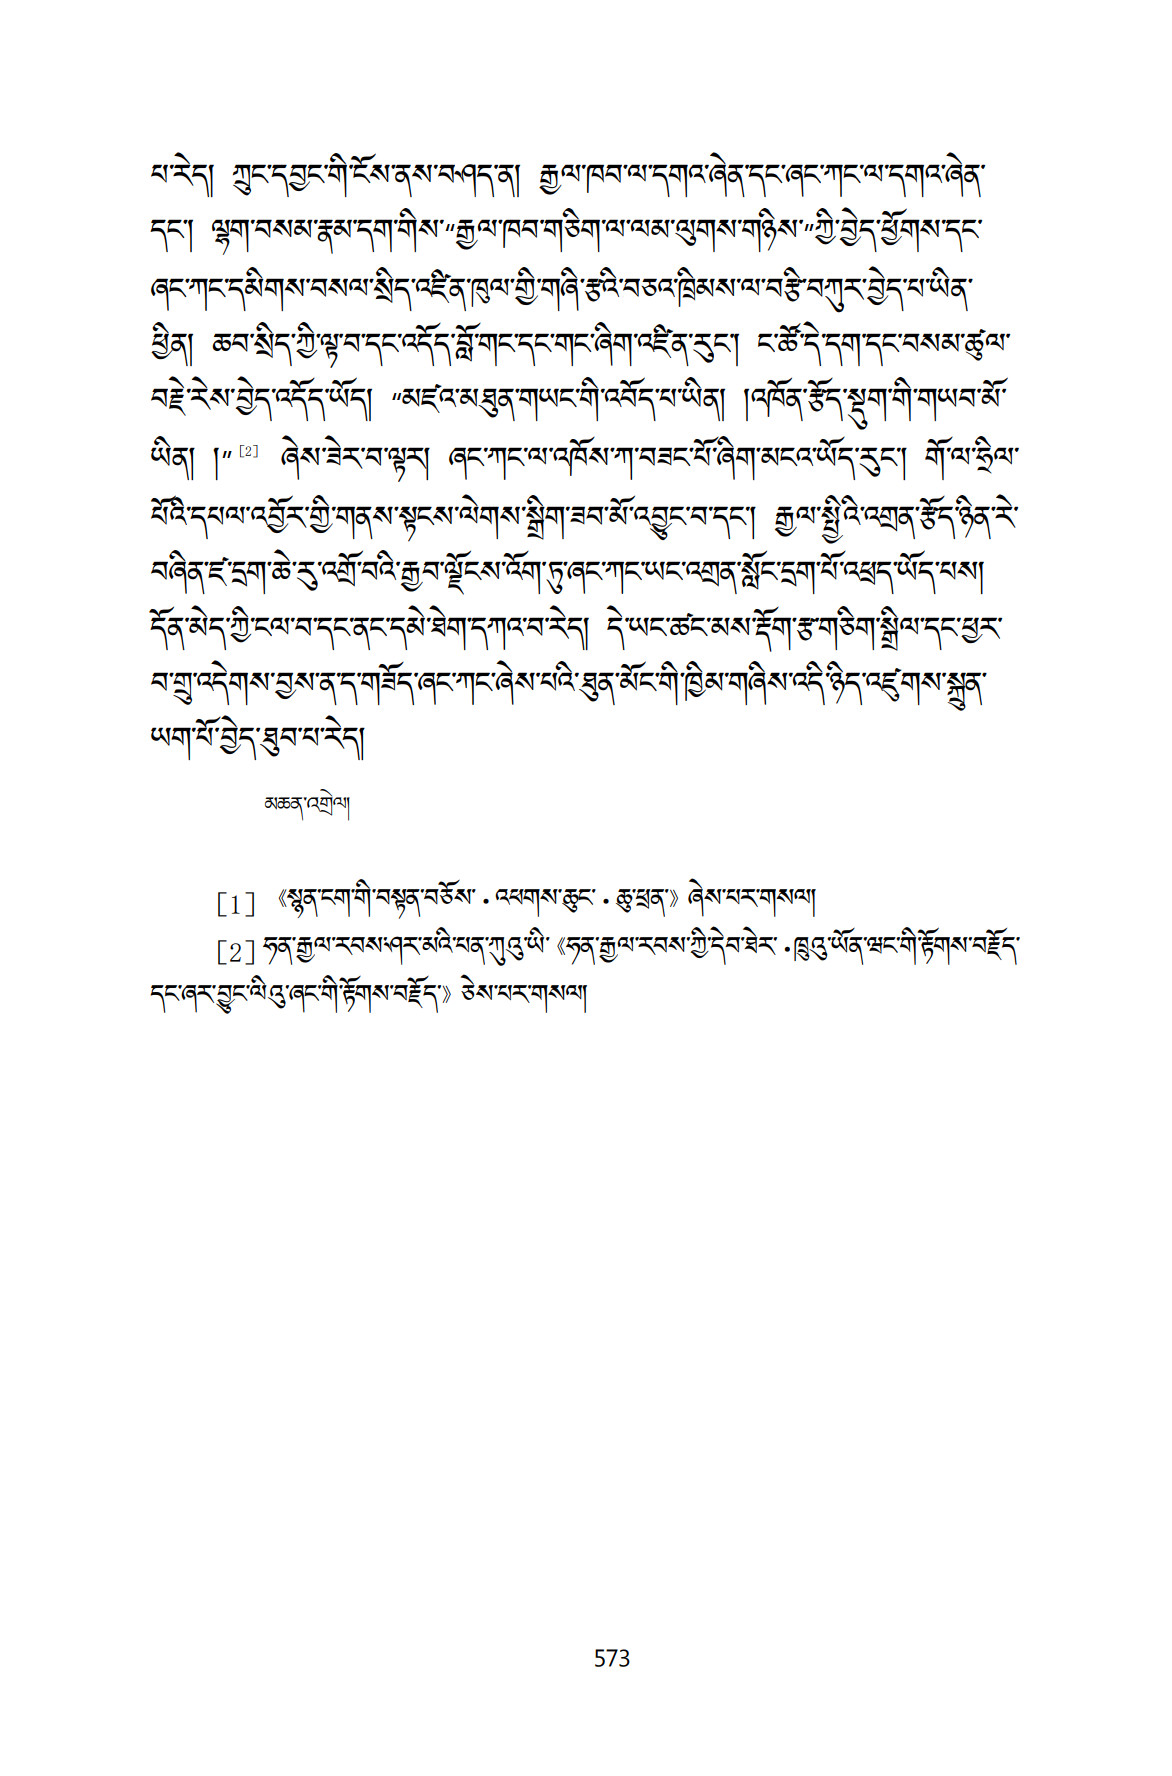 པ་རེད། ཀྲུང་དབྱང་གི་ངོས་ནས་བཤད་ན། རྒྱལ་ཁབ་ལ་དགའ་ཞེན་དང་ཞང་ཀང་ལ་དགའ་ཞེན་
དང་། ལྷག་བསམ་རྣམ་དག་གིས་“རྒྱལ་ཁབ་གཅིག་ལ་ལམ་ལུགས་གཉིས་”ཀྱི་བྱེད་ཕྱོགས་དང་
ཞང་ཀང་དམིགས་བསལ་སྲིད་འཛིན་ཁུལ་གྱི་གཞི་རྩའི་བཅའ་ཁྲིམས་ལ་བརྩི་བཀུར་བྱེད་པ་ཡིན་
ཕྱིན། ཆབ་སྲིད་ཀྱི་ལྟ་བ་དང་འདོད་བློ་གང་དང་གང་ཞིག་འཛིན་རུང་། ང་ཚོ་དེ་དག་དང་བསམ་ཚུལ་
བརྗེ་རེས་བྱེད་འདོད་ཡོད། “མཛའ་མཐུན་གཡང་གི་འབོད་པ་ཡིན། །འཁོན་རྩོད་སྡུག་གི་གཡབ་མོ་
ཡིན། །”[2] ཞེས་ཟེར་བ་ལྟར། ཞང་ཀང་ལ་འཁོས་ཀ་བཟང་པོ་ཞིག་མངའ་ཡོད་རུང་། གོ་ལ་ཧྲིལ་
པོའི་དཔལ་འབྱོར་གྱི་གནས་སྟངས་ལེགས་སྒྲིག་ཟབ་མོ་འབྱུང་བ་དང་། རྒྱལ་སྤྱིའི་འགྲན་རྩོད་ཉིན་རེ་
བཞིན་ཛ་དྲག་ཆེ་རུ་འགྲོ་བའི་རྒྱབ་ལྗོངས་འོག་ཏུ་ཞང་ཀང་ཡང་འགྲན་སློང་དྲག་པོ་འཕྲད་ཡོད་པས།
དོན་མེད་ཀྱི་ངལ་བ་དང་ནང་དམེ་ཐེག་དཀའ་བ་རེད། དེ་ཡང་ཚང་མས་རྡོག་རྩ་གཅིག་སྒྲིལ་དང་ཕྱར་
བ་གྲུ་འདེགས་བྱས་ན་ད་གཟོད་ཞང་ཀང་ཞེས་པའི་ཐུན་མོང་གི་ཁྱིམ་གཞིས་འདི་ཉིད་འཛུགས་སྐྲུན་
ཡག་པོ་བྱེད་ཐུབ་པ་རེད།
མཆན་འགྲེལ།
[1] 《སྙན་ངག་གི་བསྟན་བཅོས་·འཕགས་ཆུང་·ཆུ་ཕྲན་》ཞེས་པར་གསལ།
[2] ཧན་རྒྱལ་རབས་ཤར་མའི་པན་ཀུའུ་ཡི་《ཧན་རྒྱལ་རབས་ཀྱི་དེབ་ཐེར་·ཁྲུའུ་ཡོན་ཝང་གི་རྟོགས་བརྗོད་
དང་ཞར་བྱུང་ལིའུ་ཞང་གི་རྟོགས་བརྗོད་》ཅེས་པར་གསལ།
573